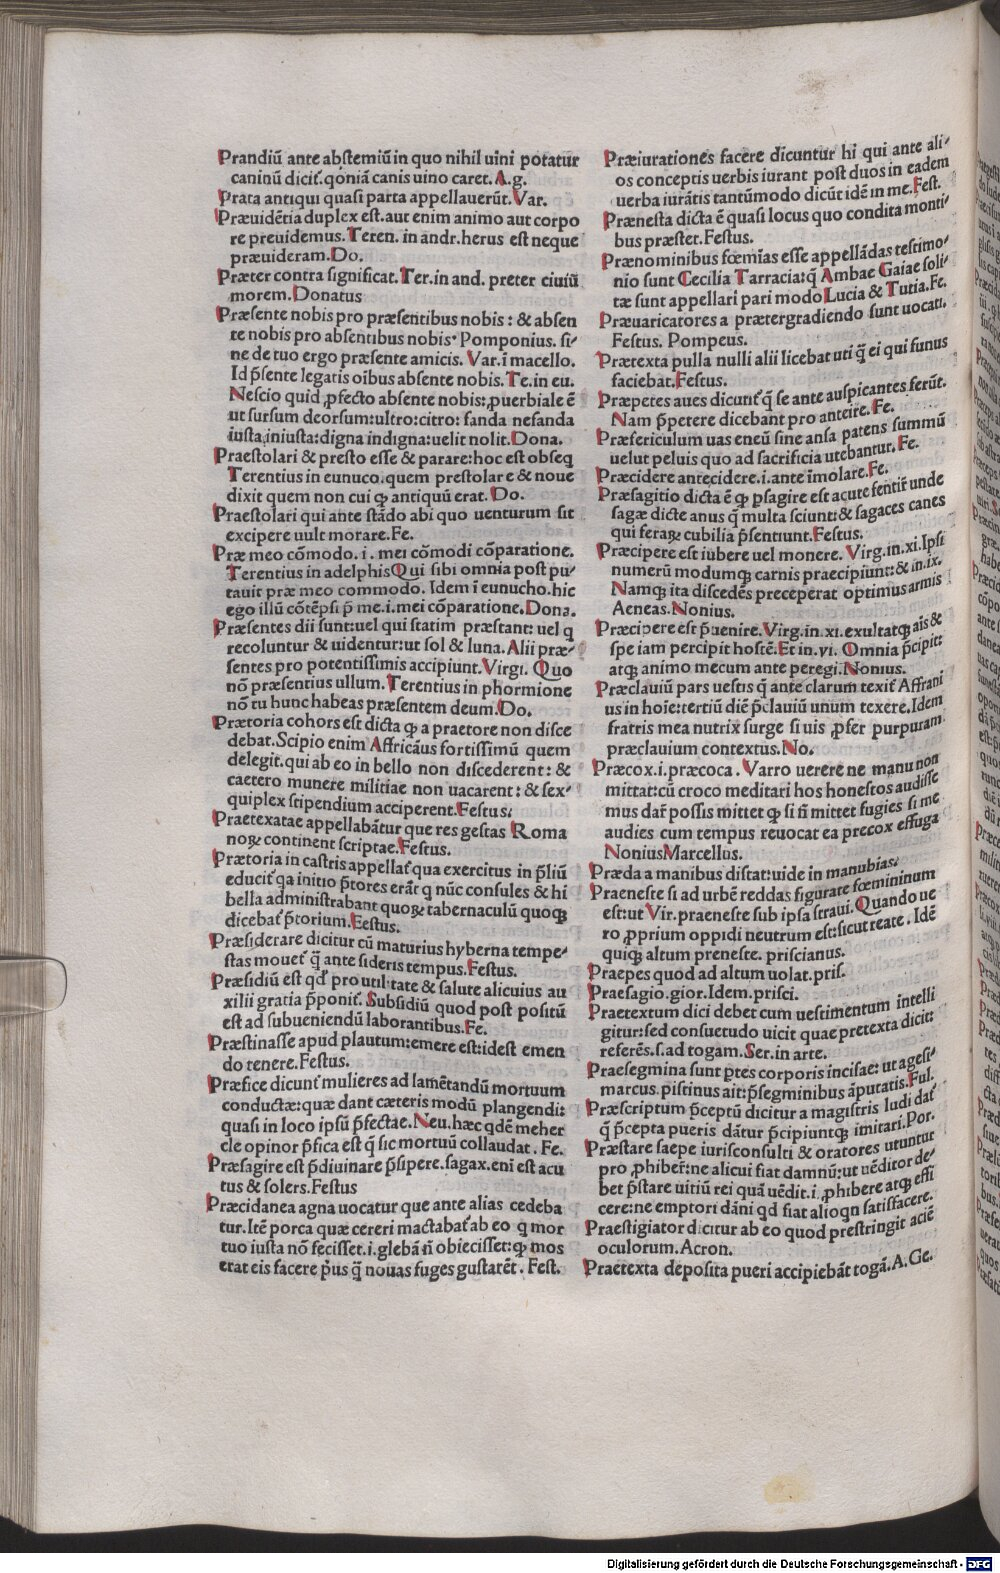 Prandiũ ante abstemiũ in quo nihil uini potatur
caninũ dicit᷑. qoniã canis uino caret. A.g.
Prata antiqui quasi parta appellauerũt. Var.
Præuidẽtia duplex est. aut enim animo aut corpo
re preuidemus. Teren. in andr. herus est neque
præuideram. Do.
Præter contra significat. Ter. in and. preter ciuiũ
morem. Donatus
Præsente nobis pro præsentibus nobis: & absen
te nobis pro absentibus nobis. Pomponius. si⸗
ne de tuo ergo præsente amicis. Var. ĩ macello.
Id p̃sente legatis oĩbus absente nobis. Te. in eu.
Nescio quid ꝓfecto absente nobis: ꝓuerbiale ẽ
ut sursum deorsum: ultro: citro: fanda nefanda
iusta, iniusta: digna indigna: uelit nolit. Dona.
Praestolari & presto esse & parare: hoc est obseq
Terentius in eunuco. quem prestolare & noue
dixit quem non cui ꝙ antiquũ erat. Do.
Praestolari qui ante stãdo abi quo uenturum sit
excipere uult morare. Fe.
Præ meo cõmodo. i. mei cõmodi cõparatione.
Terentius in adelphis Qui sibi omnia post pu⸗
tauit præ meo commodo. Idem ĩ eunucho. hic
ego illũ cõtẽpsi p̃ me. i. mei cõparatione. Dona.
Præsentes dii sunt: uel qui statim præstant: uel q
recoluntur & uidentur: ut sol & luna. Alii præ⸗
sentes pro potentissimis accipiunt. Virgi. Quo
nõ præsentius ullum. Terentius in phormione
nõ tu hunc habeas præsentem deum. Do.
Prætoria cohors est dicta ꝙ a praetore non disce
debat. Scipio enim Affricãus fortissimũ quem
delegit. qui ab eo in bello non discederent: &
caetero munere militiae non uacarent: & sex⸗
quiplex stipendium acciperent. Festus:
Praetexatae appellabãtur que res gestas Roma
noꝝ continent scriptae. Festus.
Prætoria in castris appellat᷑ qua exercitus in p̃liũ
educit᷑ qa initio p̃tores erãt q nũc consules & hi
bella administrabant quoꝝ tabernaculũ quoqꝫ
dicebat᷑ p̃torium. Festus.
Præsiderare dicitur cũ maturius hyberna tempe⸗
stas mouet᷑ q̃ ante sideris tempus. Festus.
Præsidiũ est qđ pro utilitate & salute alicuius au
xilii gratia p̃ponit᷑. Subsidiũ quod post positũ
est ad subueniendũ laborantibus. Fe.
Præstinasse apud plautum: emere est: idest emen
do tenere. Festus.
Præfice dicunt᷑ mulieres ad lamẽtandũ mortuum
conductæ: quæ dant cæteris modũ plangendi:
quasi in loco ipsũ p̃fectae. Neu. hæc qdẽ meher
cle opinor p̃fica est q̃ sic mortuũ collaudat. Fe.
Præsagire est p̃diuinare p̃sipere. sagax. eni est acu
tus & solers. Festus
Præcidanea agna uocatur que ante alias cedeba
tur. Itẽ porca quæ cereri mactabat᷑ ab eo q mor
tuo iusta nõ fecisset. i. glebã ñ obiecisset: ꝙ mos
erat eis facere p̃us q̃ nouas fuges gustarẽt. Fest.
Præiurationes facere dicuntur hi qui ante ali⸗
os conceptis uerbis iurant post duos in eadem
uerba iurãtis tantũmodo dicũt idẽ in me. Fest.
Prænesta dicta ẽ quasi locus quo condita monti⸗
bus præstet. Festus.
Prænominibus fœmias esse appellãdas testimo⸗
nio sunt Cecilia Tarracia: q̃ Ambae Gaiae soli⸗
tæ sunt appellari pari modo Lucia & Tutia. Fe.
Præuaricatores a prætergradiendo sunt uocati.
Festus. Pompeus.
Prætexta pulla nulli alii licebat uti q̃ ei qui funus
faciebat. Festus.
Præpetes aues dicunt᷑ q̃ se ante auspicantes ferũt.
Nam p̃petere dicebant pro anteire. Fe.
Præfericulum uas eneũ sine ansa patens summũ
uelut peluis quo ad sacrificia utebantur. Fe.
Præcidere antecidere. i. ante ĩmolare. Fe.
Præsagitio dicta ẽ ꝙ p̃sagire est acute sentir᷑ unde
sagæ dicte anus q̃ multa sciunt: & sagaces canes
qui feraꝝ cubilia p̃sentiunt. Festus.
Præcipere est iubere uel monere. Virg. in. xi. Ipsi
numerũ modumqꝫ carnis praecipiunt: & in. ix.
Namqꝫ ita discedẽs preceperat optimus armis
Aeneas. Nonius.
Præcipere est p̃uenire. Virg. in. xi. exultatqꝫ aĩs &
spe iam percipit hostẽ. Et in. vi. Omnia p̃cipit:
atqꝫ animo mecum ante peregi. Nonius.
Præclauiũ pars uestis q̃ ante clarum texit᷑ Affrani
us in hoie: tertiũ diẽ p̃clauiũ unum texere. Idem
fratris mea nutrix surge si uis ꝓfer purpuram
præclauium contextus. No.
Præcox. i. præcoca. Varro uerere ne manu non
mittat: cũ croco meditari hos honestos audisse
mus dar᷑ possis mittet ꝙ si ñ mittet fugies si me
audies cum tempus reuocat ea precox effuga
Nonius Marcellus.
Præda a manibus distat: uide in manubias:
Praeneste si ad urbẽ reddas figurate fœmininum
est: ut Vir. praeneste sub ipsa straui. Quando ue
ro ꝓprium oppidi neutrum est: sicut reate. Idẽ
quiqꝫ altum preneste. priscianus.
Praepes quod ad altum uolat. pris.
Praesagio. gior. Idem. prisci.
Praetextum dici debet cum uestimentum intelli
gitur: sed consuetudo uicit quae pretexta dicit:
referẽs. s. ad togam. Ser. in arte.
Praesegmina sunt p̃tes corporis incisae: ut agesi⸗
marcus. pistinus ait: p̃segminibus ãputatis. Ful.
Præscriptum p̃ceptũ dicitur a magistris ludi dat᷑
q̃ p̃cepta pueris dãtur p̃cipiuntqꝫ imitari. Por.
Præstare saepe iurisconsulti & oratores utuntur
pro ꝓhiber᷑: ne alicui fiat damnũ: ut uẽditor de⸗
bet p̃stare uitiũ rei quã uẽdit. i. ꝓhibere atqꝫ effi
cere: ne emptori dãni qđ fiat alioqn satisfacere.
Praestigiator dicitur ab eo quod prestringit aciẽ
oculorum. Acron.
Praetexta deposita pueri accipiebãt togã. A. Ge.
Digitalisierung gefördert durch die Deutsche Forschungsgemeinschaft - DFG